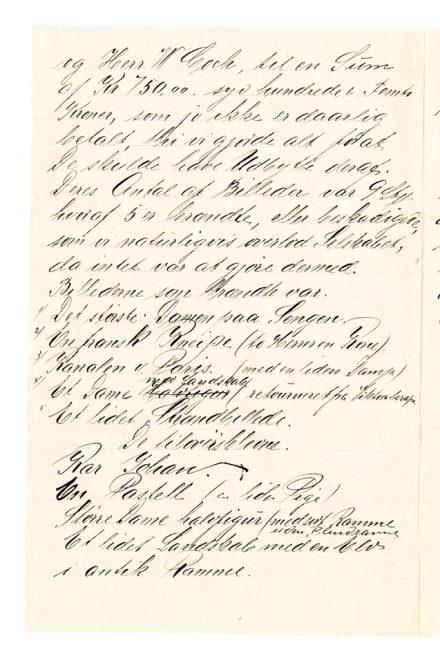 og Herr W Coch, til en Sum
af Kr 750.00. syv hundreder Femti
Kroner, som jo ikke er daarlig
betalt, Thi vi gjorde alt forat
De skulde have Udbytte deraf.
Deres Antal af Billeder var 9 Sty.
hvoraf 5 er brændte, eller beskadigede,
som vi naturligvis overlod Selskabet,
da intet var at gjøre dermed.
Billederne som brændte var.
1) Det største: Damen paa Sengen.
2) En fransk Kneipe. (to Herrer en Kone)
3) Kanalen v. Paris. (med en liden Damp)
4) Et Dame med Landskab / retourneret fra
5 Et lidet Strandbillede.
De tiloversblevne.
Kar Johan.
En Pastell (en liden Pige)
Større Dame halvfigur (med sort Ramme
uden
Et lidet Landskab med en Elv
i antik Ramme.